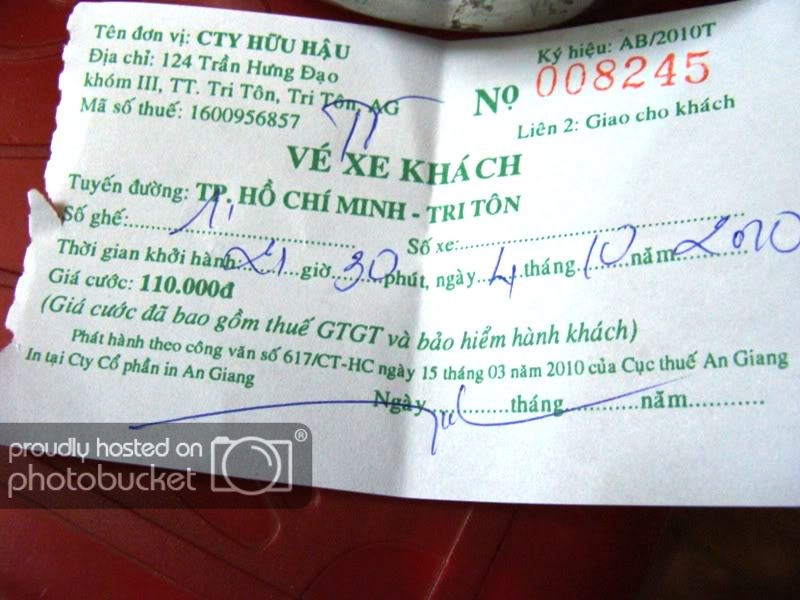 Tên đơn vị: CTY HỮU HẬU
Địa chỉ: 124 Trần Hưng Đạo
khóm III, TT. Tri Tôn, Tri Tôn, AG
Mã số thuế: 1600956857
Ký hiệu: AB/2010T
Nọ 008245
Liên 2: Giao cho khách
VÉ XE KHÁCH
Tuyến đường: TP. HỒ CHÍ MINH - TRI TÔN
Số ghế:........ Số xe:........
Thời gian khởi hành 21 giờ 30 phút, ngày 4 tháng 10 năm 2010
Giá cước: 110.000đ
(Giá cước đã bao gồm thuế GTGT và bảo hiểm hành khách)
Phát hành theo công văn số 617/CT-HC ngày 15 tháng 03 năm 2010 của Cục thuế An Giang
In tại Cty Cổ phần in An Giang
Ngày........tháng........năm........
proudly hosted on
photobucket